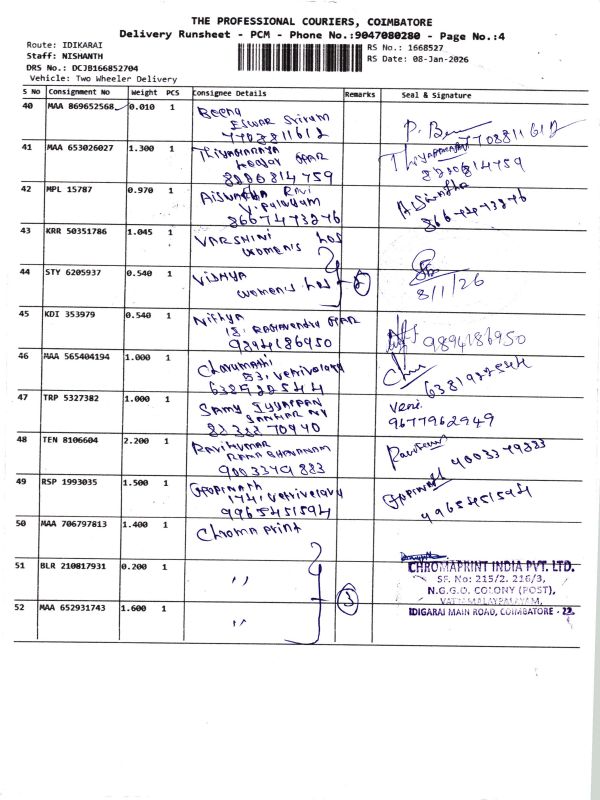 THE PROFESSIONAL COURIERS, COIMBATORE
Delivery Runsheet - PCM - Phone No.:9047080280 - Page No.:4
Route: IDIKARAI
RS No.: 1668527
Staff: NISHANTH
RS Date: 08-Jan-2026
DRS No.: DCJB166852704
Vehicle: Two Wheeler Delivery
S No Consignment No Weight PCS Consignee Details Remarks Seal & Signature
40 MAA 869652568 0.010 1 Beena
Eswar Sriram
7708811612
P. Been
7708811612
41 MAA 653026027 1.300 1 Thiyagaraya
8220814759
8220814759
42 MPL 15787 0.970 1 Aiswarya Ravi
8667473276
8667473276
43 KRR 50351786 1.045 1 VARSHINI
women's hos
44 STY 6205937 0.540 1 Vishya
women's hos
2
8/1/26
45 KDI 353979 0.540 1 Nithya
18, Raghavendra
9894186950
9894186950
46 MAA 565404194 1.000 1 Charumathi
53, Vetrivelavy
6381922544
6381922544
47 TRP 5327382 1.000 1 Samy Iyyappan
Sankar NY
8238870940
Veni.
9677962949
48 TEN 8106604 2.200 1 Ravikumar
9003379883
9003379883
49 RSP 1993035 1.500 1 Gopinath
174, Vetrivelavy
9965451594
Gopinath
9965451594
50 MAA 706797813 1.400 1 Chroma print
51 BLR 210817931 0.200 1 ,,
52 MAA 652931743 1.600 1 ,,
3
CHROMAPRINT INDIA PVT. LTD.
SF. No: 215/2. 216/3,
N.G.G.O. COLONY (POST),
VATTAMALAYPALAYAM,
IDIGARAI MAIN ROAD, COIMBATORE - 22.